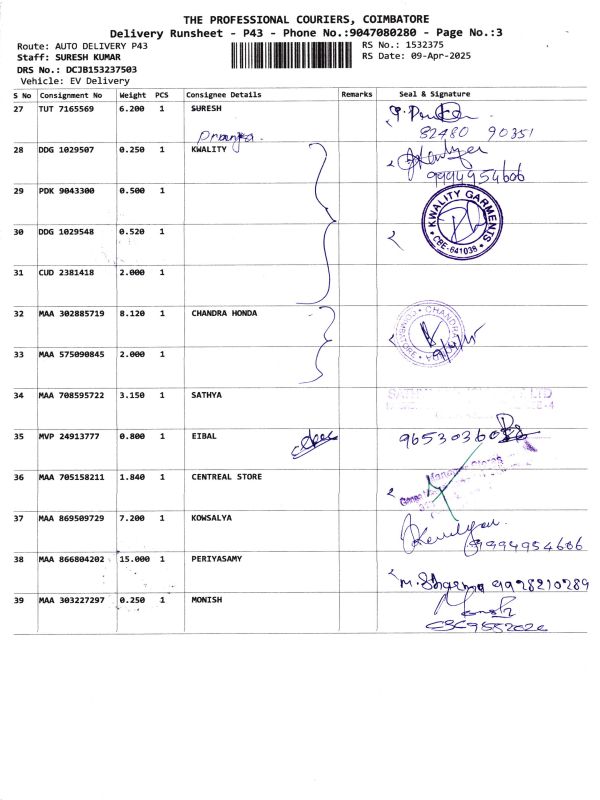 THE PROFESSIONAL COURIERS, COIMBATORE
Delivery Runsheet - P43 - Phone No.:9047080280 - Page No.:3
Route: AUTO DELIVERY P43
RS No.: 1532375
Staff: SURESH KUMAR
RS Date: 09-Apr-2025
DRS No.: DCJB153237503
Vehicle: EV Delivery
S No Consignment No Weight PCS Consignee Details Remarks Seal & Signature
27 TUT 7165569 6.200 1 SURESH
82480 90351
28 DDG 1029507 0.250 1 KWALITY
9994954606
29 PDK 9043300 0.500 1
KWALITY GARMENTS
CBE-641038
30 DDG 1029548 0.520 1
31 CUD 2381418 2.000 1
32 MAA 302885719 8.120 1 CHANDRA HONDA
CHANDRA
33 MAA 575090845 2.000 1
34 MAA 708595722 3.150 1 SATHYA
35 MVP 24913777 0.800 1 EIBAL
36 MAA 705158211 1.840 1 CENTREAL STORE
37 MAA 869509729 7.200 1 KOWSALYA
9994954606
38 MAA 866804202 15.000 1 PERIYASAMY
M. Sharma 9928210289
39 MAA 303227297 0.250 1 MONISH